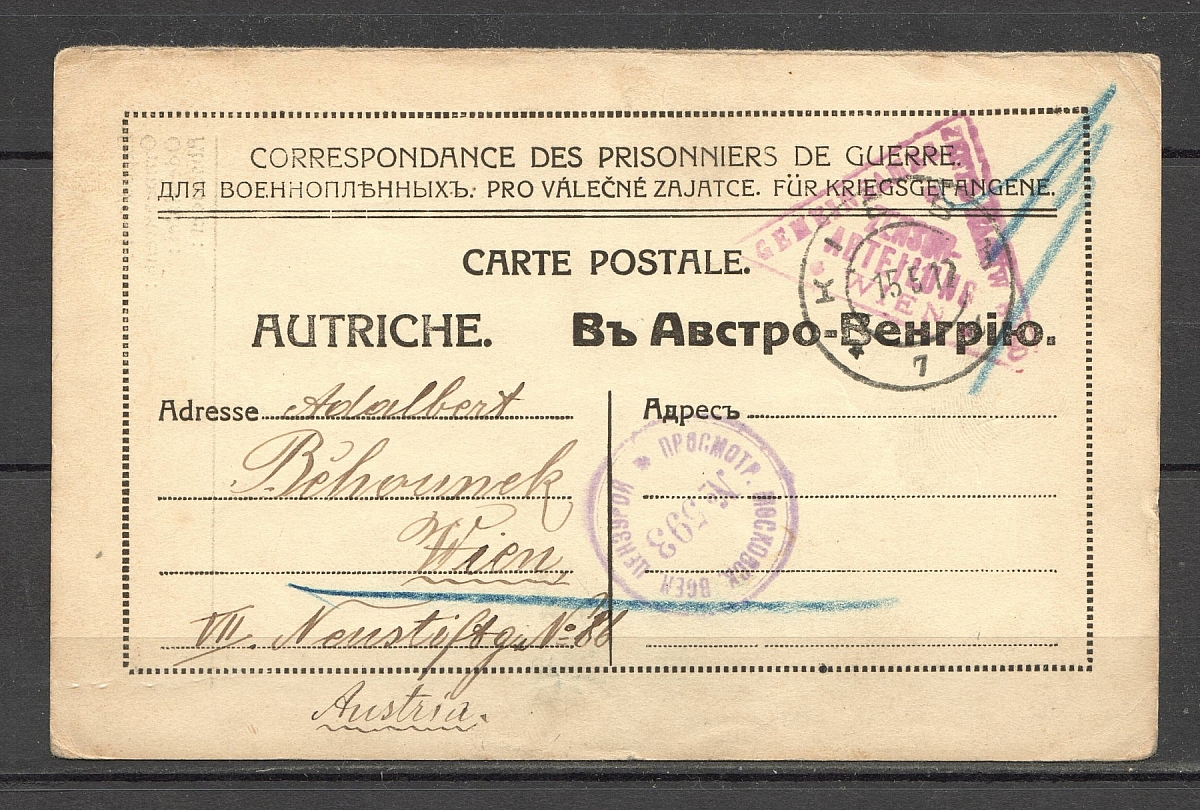 CORRESPONDANCE DES PRISONNIERS DE GUERRE.
ДЛЯ ВОЕННОПЛѢННЫХЪ. PRO VÁLEČNÉ ZAJATCE. FÜR KRIEGSGEFANGENE.
CARTE POSTALE.
AUTRICHE. Въ Австро-Венгрію.
Adresse Adalbert
Běhounek
Wien
VII. Neustiftg. No 86
Austria.
Адресъ
ПРОСМОТР. МОСКОВСК. ВОЕН ЦЕНЗУРОЙ
№ 593
ZENSUR-
ABTEILUNG
WIEN
КІЕВЪ
7